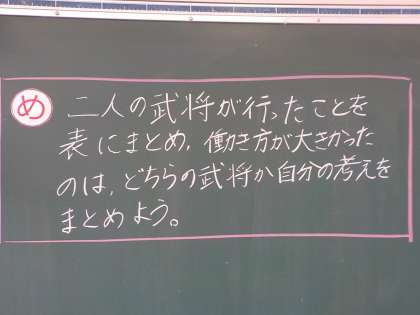 め 二人の武将が行ったことを
表にまとめ，働き方が大きかった
のは，どちらの武将か自分の考えを
まとめよう。